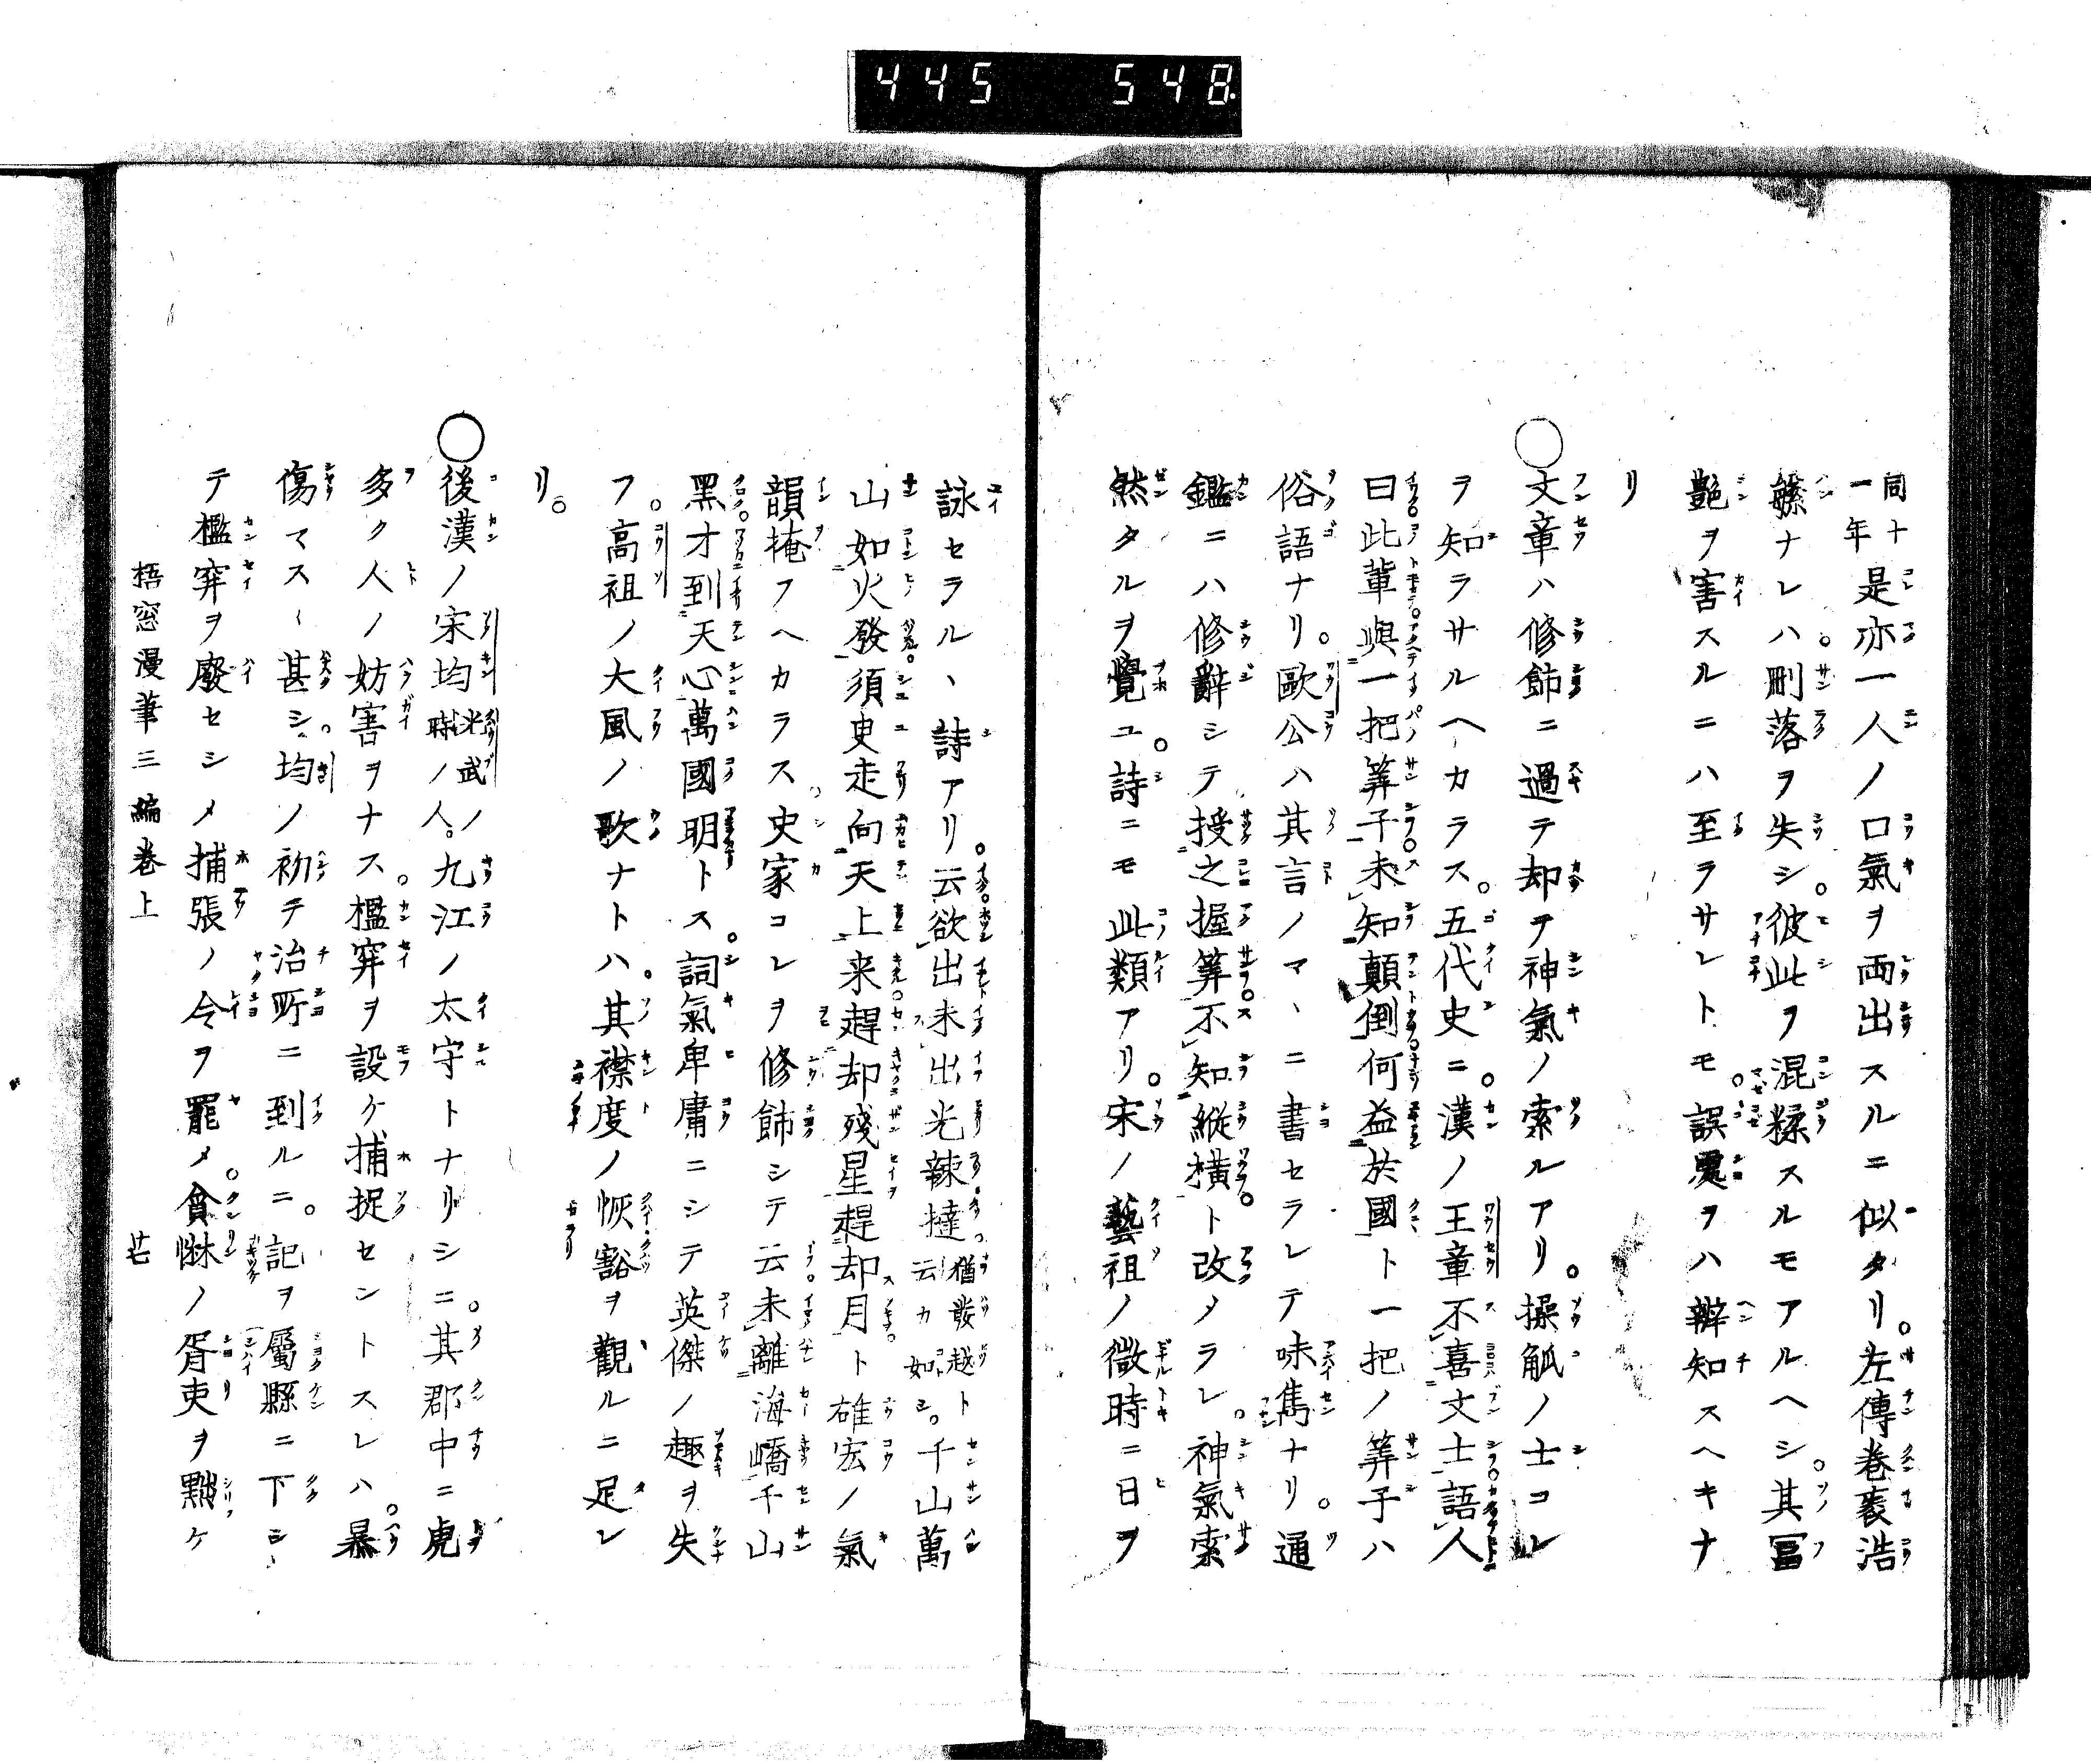 445 548
同十一年是亦一人ノ口氣ヲ両出スルニ似タリ。左傳巻袠浩
緐ナレハ。刪落ヲ失シ。彼此ヲ混糅スルモアルヘシ。其冨
艶ヲ害スルニハ至ラサレトモ。誤寔ヲハ辨知スヘキナ
リ
○文章ハ修飾ニ過テ却テ神氣ノ索ルアリ。操觚ノ士コレ
ヲ知ラサルヘカラス。五代史ニ。漢ノ王章不喜文士語人
曰此輩與一把筭子未知顛倒何益於國ト一把ノ筭子ハ
俗語ナリ。歐公ハ其言ノマヽニ書セラレテ味雋ナリ。通
鑑ニハ修辭シテ授之握筭不知縱横ト改メラレ。神氣索
然タルヲ覺ユ。詩ニモ此類アリ。宋ノ藝祖ノ微時ニ日ヲ
詠セラルヽ詩アリ。云欲出未出光辣撻。猶發越ト云カ如シ。千山萬
山如火發須臾走向天上来趕却殘星趕却月ト雄宏ノ氣
韻掩フヘカラス史家コレヲ修飾シテ云未離海嶠千山
黑才到天心萬國明トス。詞氣卑庸ニシテ英傑ノ趣ヲ失
フ。高祖ノ大風ノ歌ナトハ。其襟度ノ恢豁ヲ觀ルニ足レ
リ。
○後漢ノ宋均光武ノ時ノ人。九江ノ太守トナリシニ。其郡中ニ虎
多ク人ノ妨害ヲナス。檻穽ヲ設ケ捕捉セントスレハ。暴
傷マスヽ甚シ。均ノ初テ治所ニ到ルニ。記ヲ屬縣ニ下シ
テ檻穽ヲ廢セシメ捕張ノ令ヲ罷メ。貪惏ノ胥吏ヲ黜ケ
梧窓漫筆三編巻上